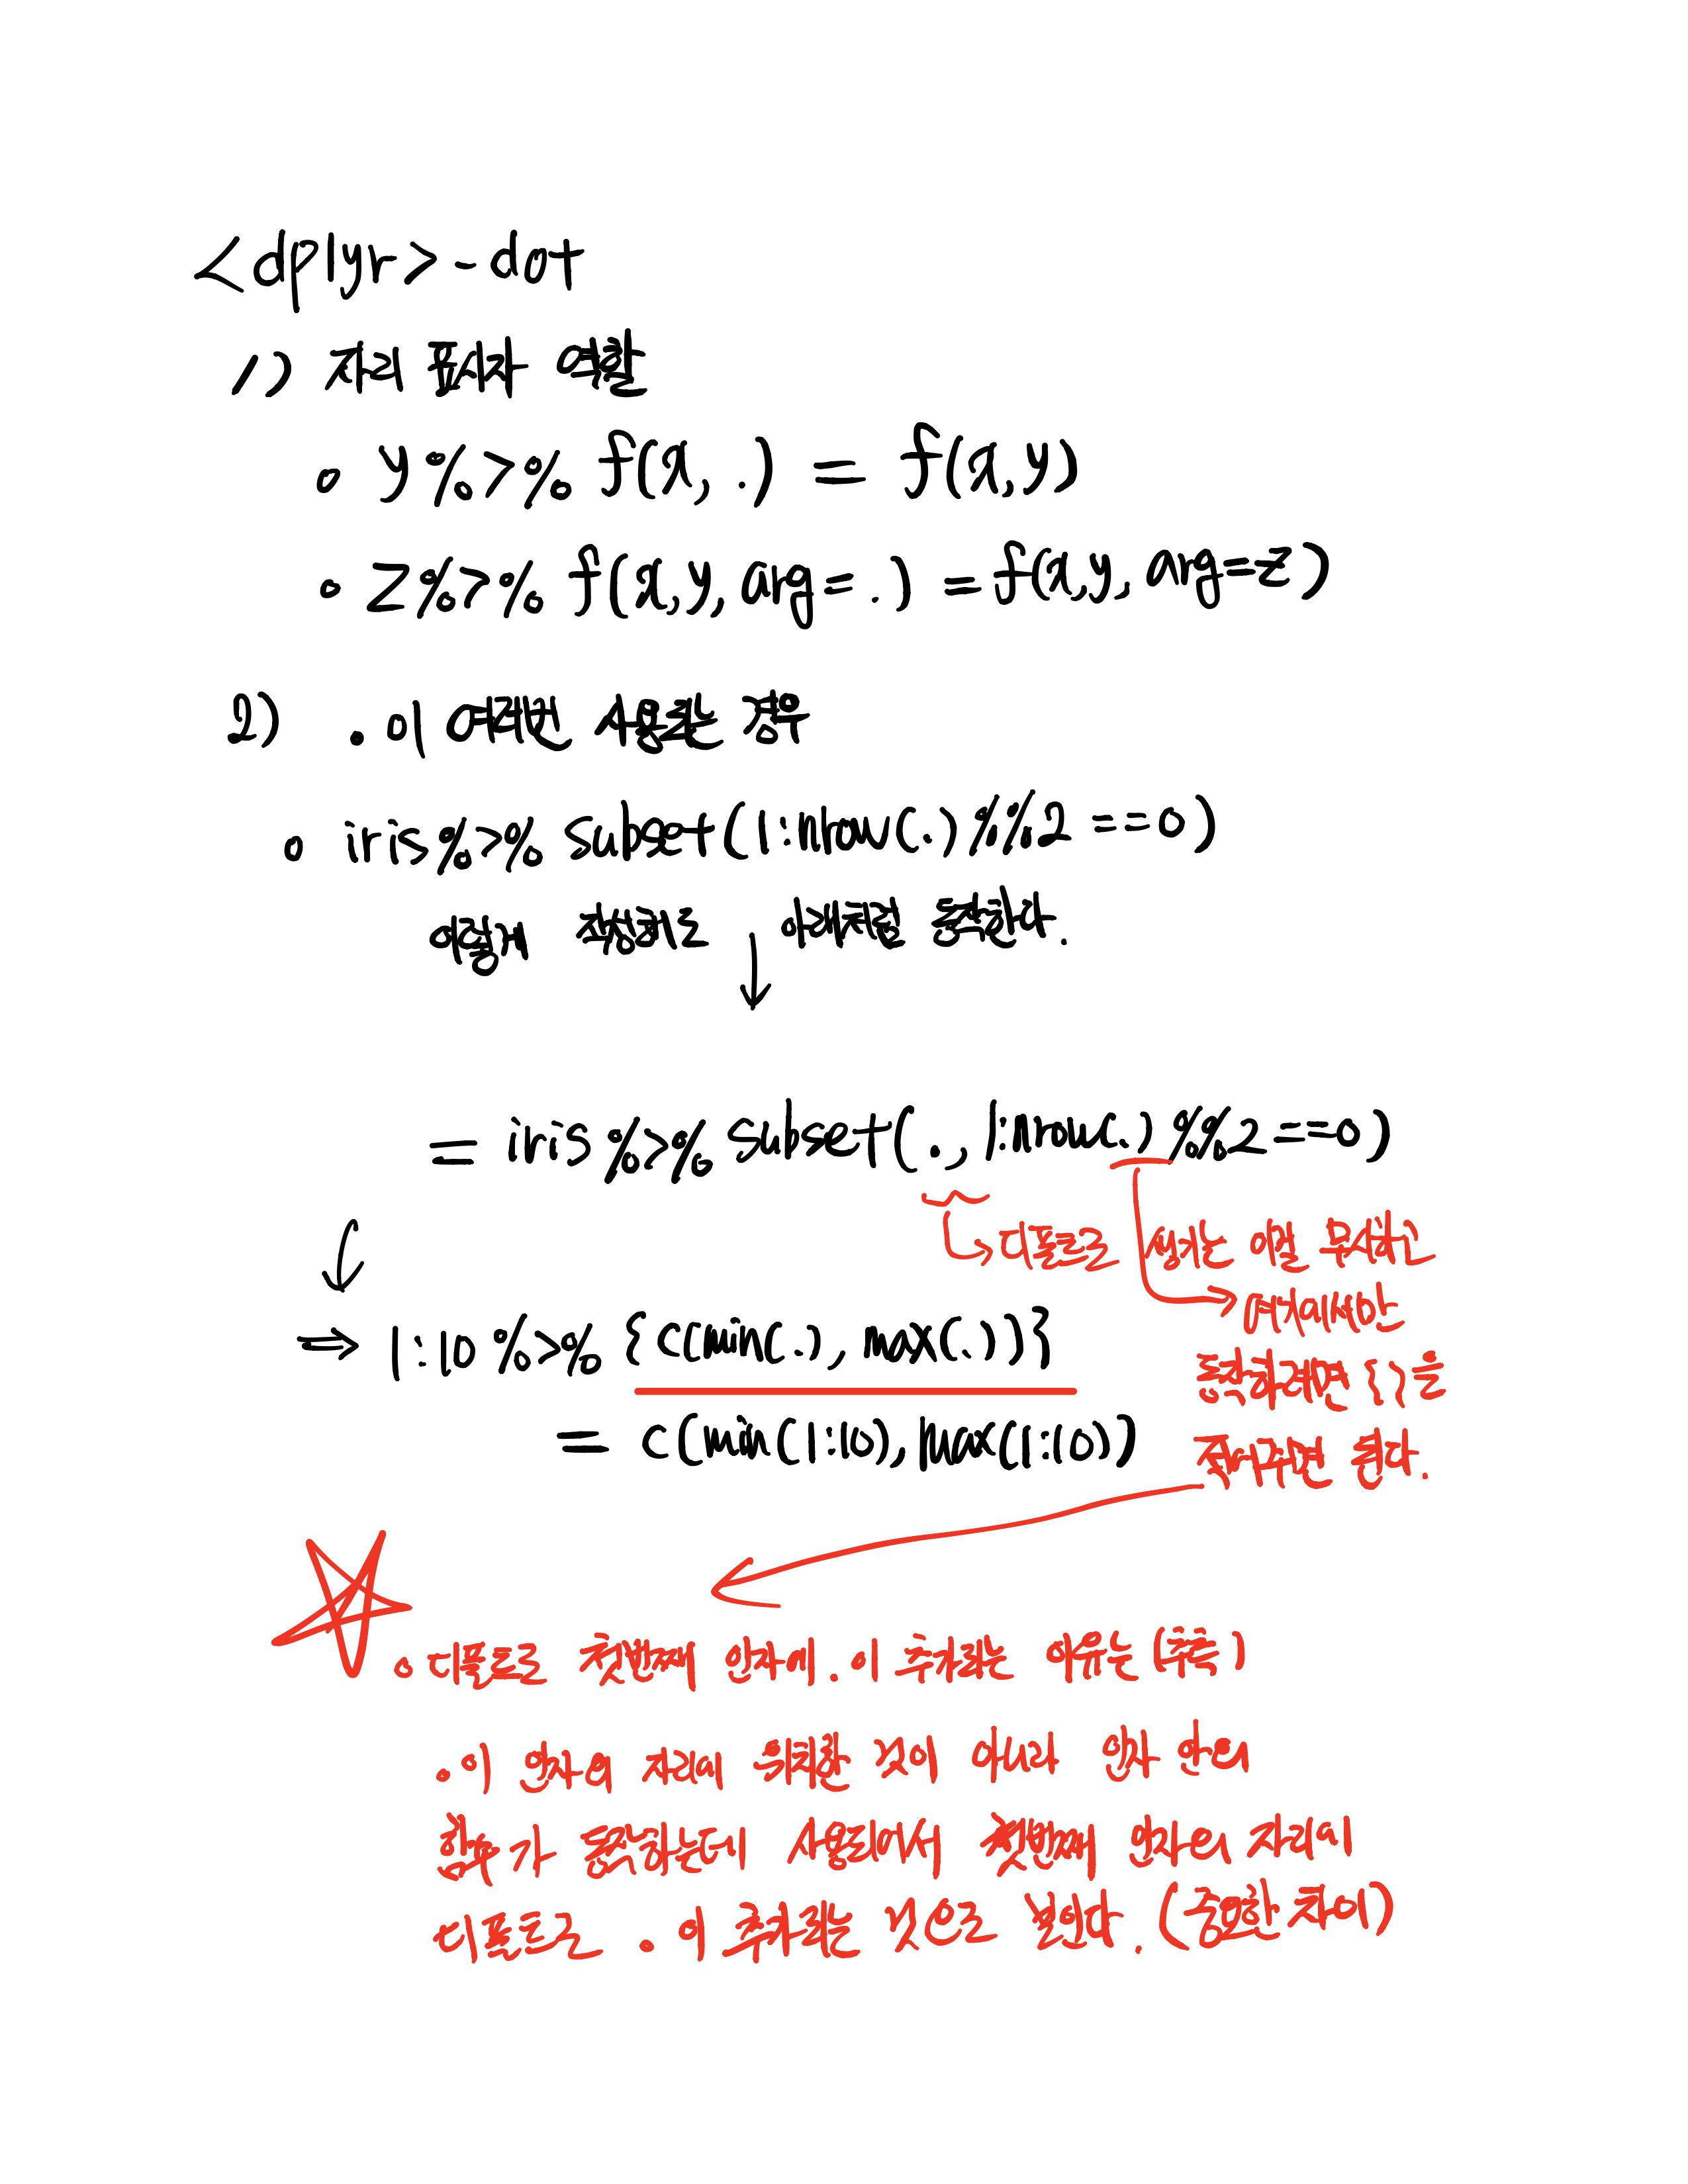 <dplyr> - dot
1) 자리 표시자 역할
o y %>% f(x, .) = f(x, y)
o z %>% f(x, y, arg = .) = f(x, y, arg = z)
2) . 이 여러번 사용되는 경우
o iris %>% subset(1:nrow(.) %% 2 == 0)
이렇게 작성해도 ↓ 아래처럼 동작한다.
= iris %>% subset(., 1:nrow(.) %% 2 == 0)
↳ 디폴트로 생기는 이걸 무시하고
→ 여기에서만
동작하려면 { }을
적어주면 된다.
⇒ 1:10 %>% {c(min(.), max(.))}
= c(min(1:10), max(1:10))
o 디폴트로 첫번째 인자에 . 이 추가되는 이유는 (추측)
. 이 인자의 자리에 위치한 것이 아니라 인자 안의
함수가 동작하는데 사용되어서 첫번째 인자의 자리에
디폴트로 . 이 추가되는 것으로 보인다. (중요한 차이)